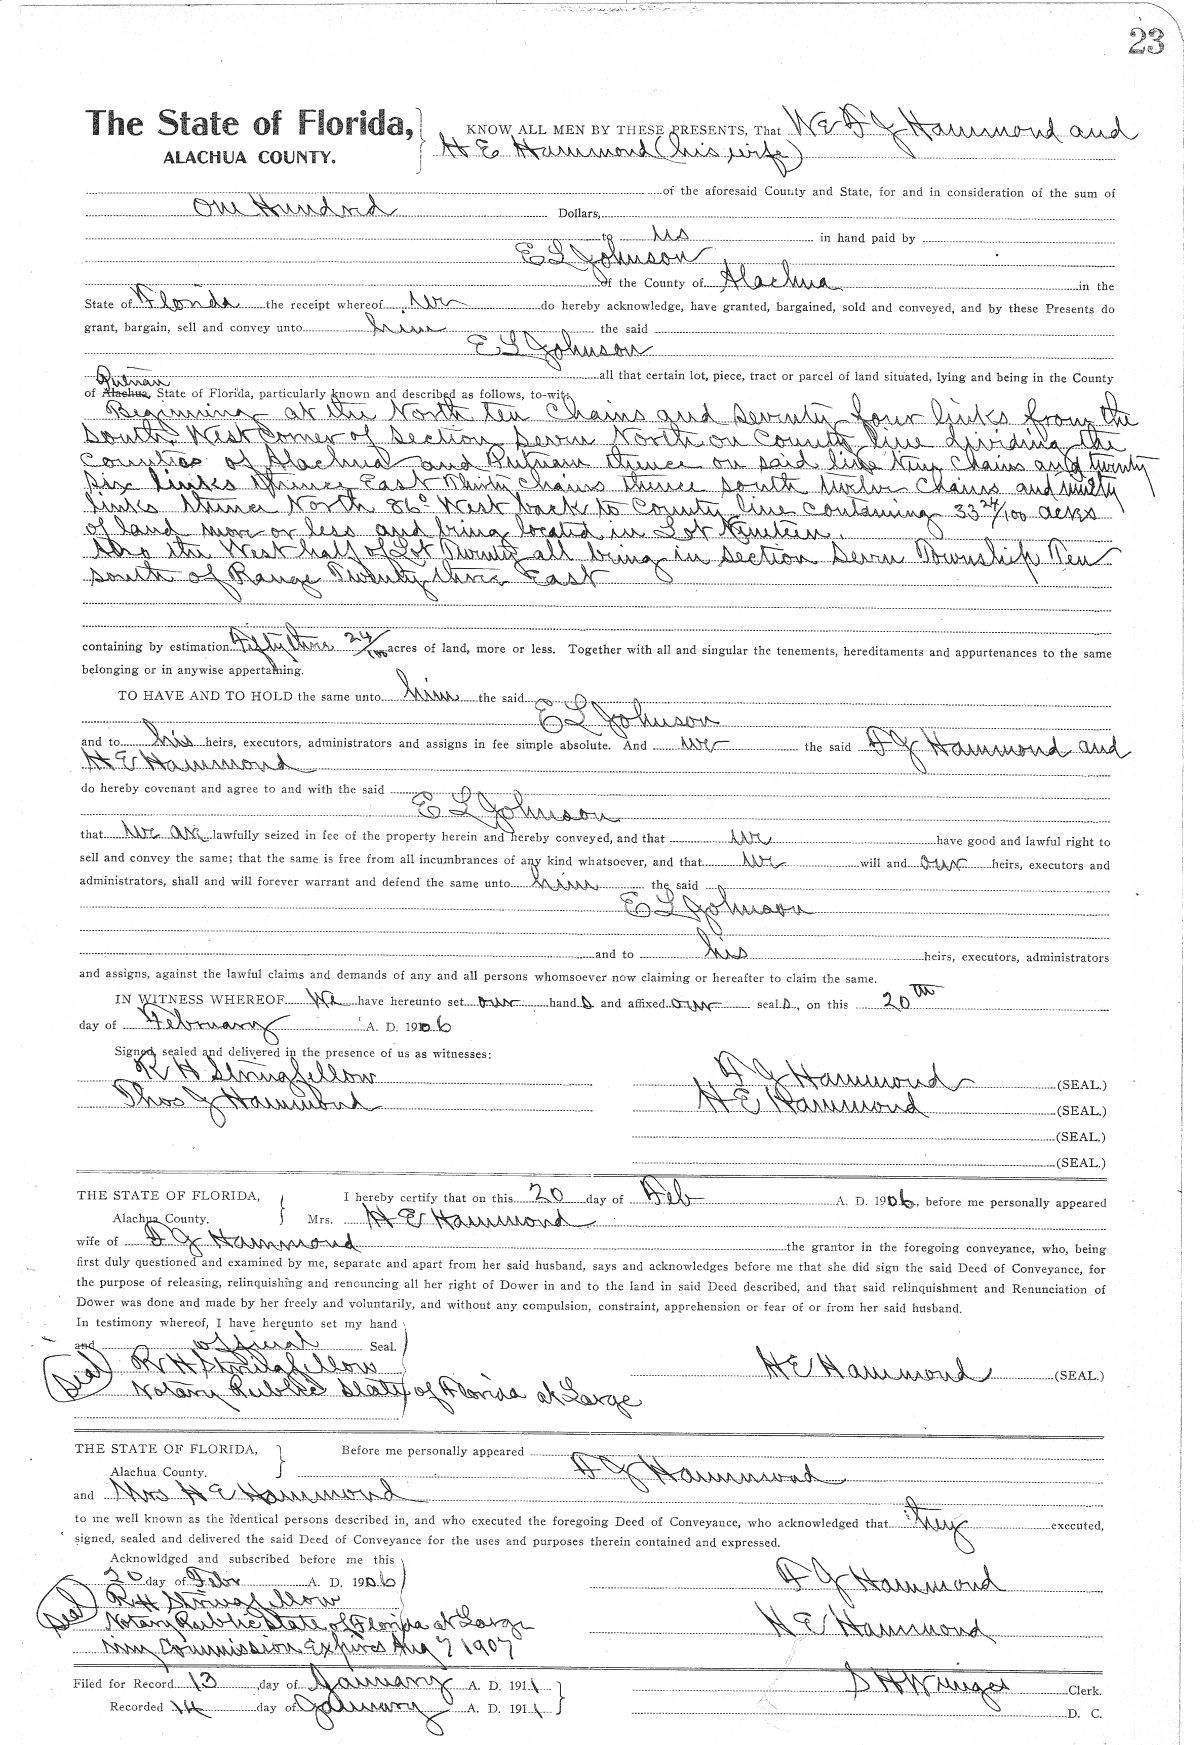 23
The State of Florida, KNOW ALL MEN BY THESE PRESENTS, That We F J Hammond and
ALACHUA COUNTY. H E Hammond (his wife)
of the aforesaid County and State, for and in consideration of the sum of
One Hundrd Dollars,
to us in hand paid by
E L Johnson
of the County of Alachua in the
State of Florida the receipt whereof we do hereby acknowledge, have granted, bargained, sold and conveyed, and by these Presents do
grant, bargain, sell and convey unto him the said
E L Johnson
all that certain lot, piece, tract or parcel of land situated, lying and being in the County
Putnam
of Alachua, State of Florida, particularly known and described as follows, to-wit:
Beginning at the North ten Chains and seventy four links from the
South West Corner of Section Seven North on County line dividing the
Counties of Alachua and Putnam thence on said line Nine Chains and twenty
six links thence East Thirty Chains thence south twelve Chains and ninety
links thence North 86° West back to County line containing 33 24/100 acres
of land more or less and being located in Lot Nineteen.
Also the West half of Lot Twenty all being in section Seven Township Ten
south of Range Twenty three East
containing by estimation Fifty three 24/100 acres of land, more or less. Together with all and singular the tenements, hereditaments and appurtenances to the same
belonging or in anywise appertaining.
TO HAVE AND TO HOLD the same unto him the said
E L Johnson
and to his heirs, executors, administrators and assigns in fee simple absolute. And we the said F J Hammond and
H E Hammond
do hereby covenant and agree to and with the said
E L Johnson
that we are lawfully seized in fee of the property herein and hereby conveyed, and that we have good and lawful right to
sell and convey the same; that the same is free from all incumbrances of any kind whatsoever, and that we will and our heirs, executors and
administrators, shall and will forever warrant and defend the same unto him the said
E L Johnson
and to his heirs, executors, administrators
and assigns, against the lawful claims and demands of any and all persons whomsoever now claiming or hereafter to claim the same.
IN WITNESS WHEREOF We have hereunto set our hands and affixed our seals, on this 20th
day of February A. D. 1906
Signed, sealed and delivered in the presence of us as witnesses:
R H Stringfellow F J Hammond (SEAL.)
Thos J Hammond H E Hammond (SEAL.)
(SEAL.)
(SEAL.)
THE STATE OF FLORIDA, I hereby certify that on this 20 day of Feb A. D. 1906, before me personally appeared
Alachua County. Mrs. H E Hammond
wife of F J Hammond the grantor in the foregoing conveyance, who, being
first duly questioned and examined by me, separate and apart from her said husband, says and acknowledges before me that she did sign the said Deed of Conveyance, for
the purpose of releasing, relinquishing and renouncing all her right of Dower in and to the land in said Deed described, and that said relinquishment and Renunciation of
Dower was done and made by her freely and voluntarily, and without any compulsion, constraint, apprehension or fear of or from her said husband.
In testimony whereof, I have hereunto set my hand
and official Seal.
Seal R H Stringfellow H E Hammond (SEAL.)
Notary Public State of Florida at Large
THE STATE OF FLORIDA, Before me personally appeared
Alachua County. F J Hammond
and Mrs H E Hammond
to me well known as the identical persons described in, and who executed the foregoing Deed of Conveyance, who acknowledged that they executed,
signed, sealed and delivered the said Deed of Conveyance for the uses and purposes therein contained and expressed.
Acknowldged and subscribed before me this
20 day of Febr A. D. 1906 F J Hammond
Seal R H Stringfellow
Notary Public State of Florida at Large H E Hammond
my Commission Expires Aug 7 1907
Filed for Record 13 day of January A. D. 1911 S H Wienges Clerk.
Recorded 14 day of January A. D. 1911 D. C.